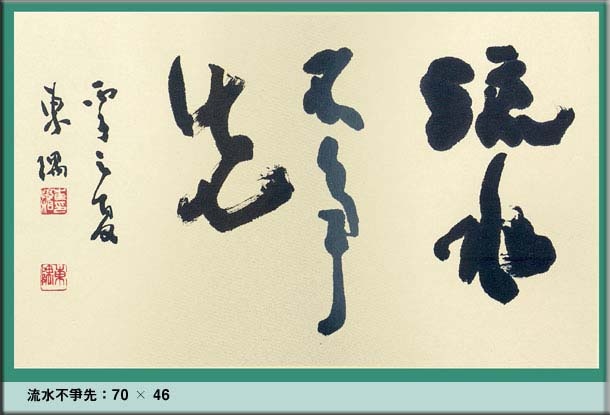 流水
不爭
先
之夏
東隅
流水不爭先：70 × 46